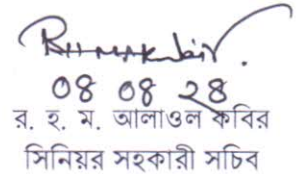 08 08 28
র. হ. ম. আলাওল কবির
সিনিয়র সহকারী সচিব